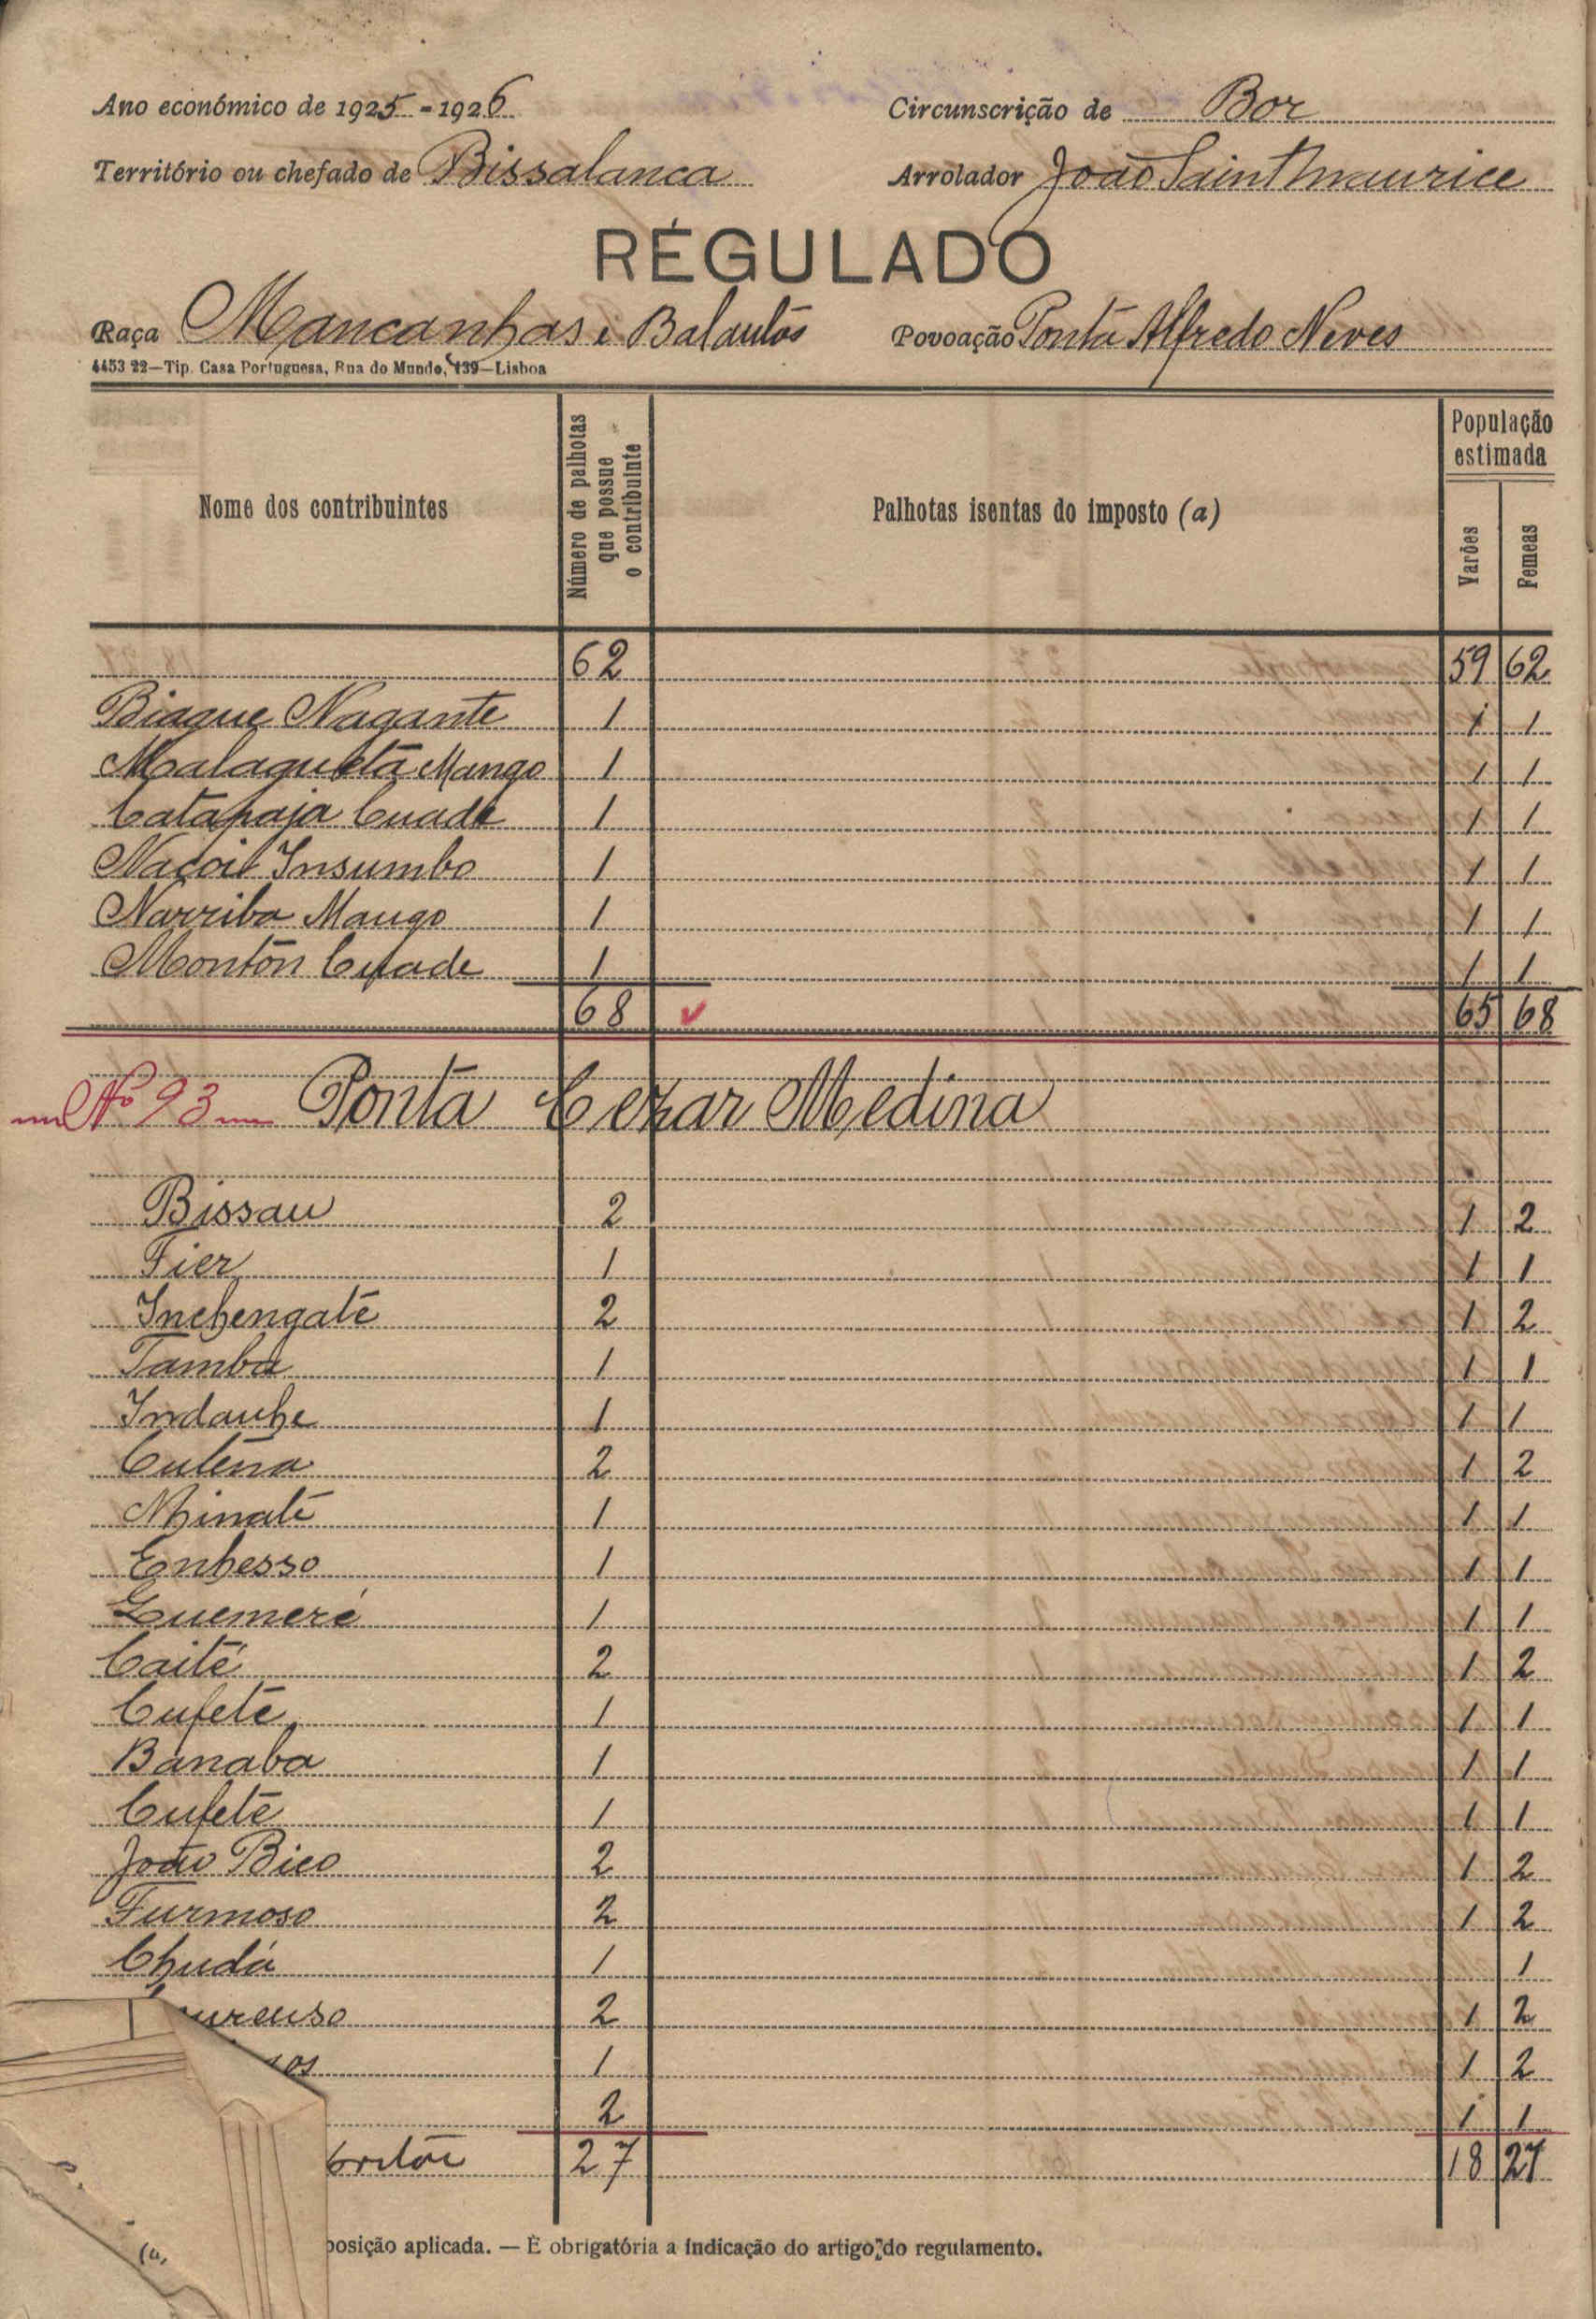 Ano económico de 1925-1926 Circunscrição de Bor
Território ou chefado de Bissalanca Arrolador João Saintmaurice
RÉGULADO
Raça Mancanhas e Balantãs Povoação Ponta Alfredo Neves
4453 22—Tip. Casa Portuguesa, Rua do Mundo, 139—Lisboa
Nome dos contribuintes Número de palhotas que possue o contribuinte Palhotas isentas do imposto (a) População estimada Varões Femeas
62 59 62
Biague Nagante 1 1 1
Malagueta Mango 1 1 1
Catapaja Cuade 1 1 1
Naçoil Insumbo 1 1 1
Narriba Mango 1 1 1
Montôn Cuade 1 1 1
68 65 68
Nº 93 Ponta Cezar Medina
Bissau 2 1 2
Fier 1 1 1
Inchengaté 2 1 2
Tamba 1 1 1
Indauhe 1 1 1
Cutena 2 1 2
Nhinaté 1 1 1
Enhesso 1 1 1
Guemeré 1 1 1
Caité 2 1 2
Cufeté 1 1 1
Banaba 1 1 1
Cufeté 1 1 1
João Bico 2 1 2
Furmoso 2 1 2
Chudá 1 1
urenso 2 1 2
os 1 1 2
2 1 1
27 18 27
posição aplicada. — É obrigatória a indicação do artigo do regulamento.
(a,